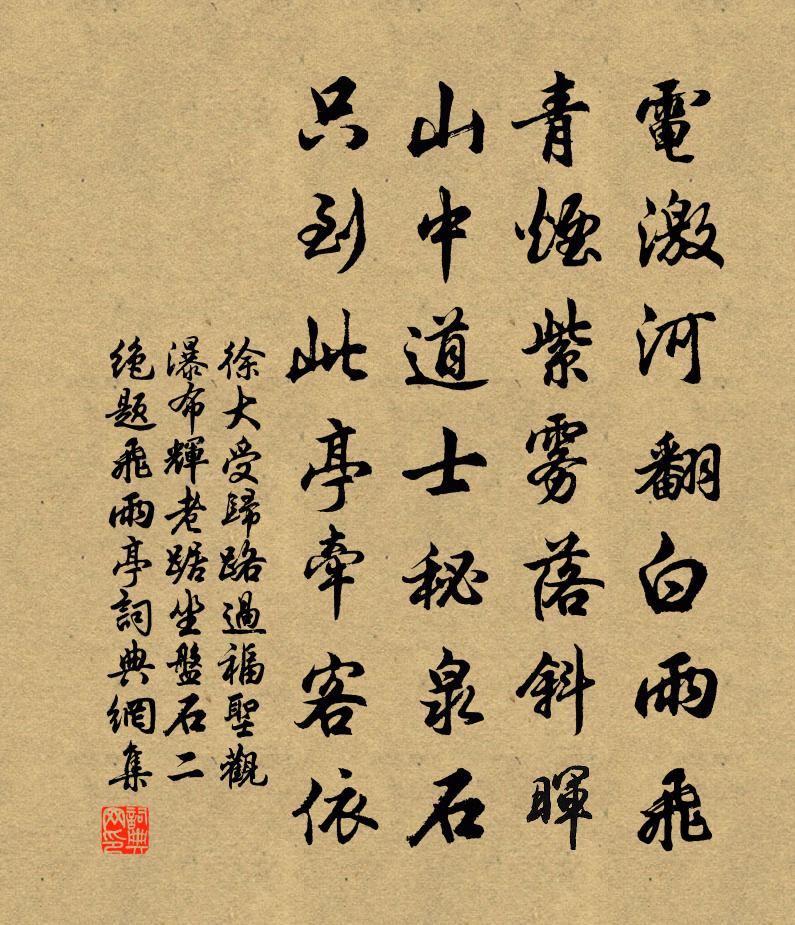 電激河翻白雨飛
青煙紫雾落斜暉
山中道士秘泉石
只到此亭牽客依
徐大受歸路過福聖觀
瀑布輝老踞坐盤石二
絶題飛雨亭詞典網集
詞典网印